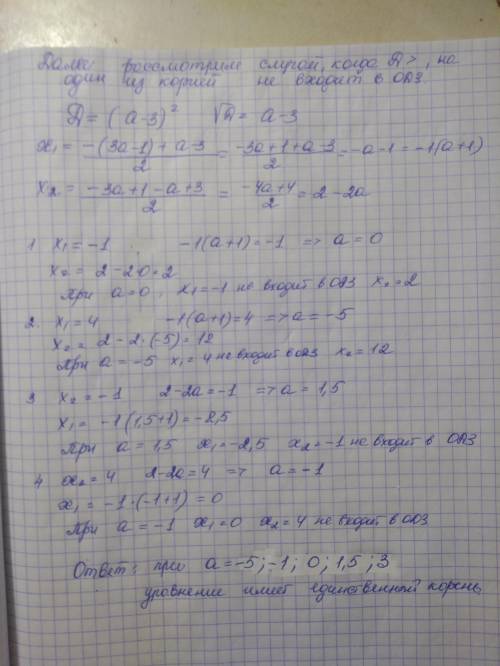 Далее рассмотрим случай, когда D >, но
один из корней не входит в ОДЗ.
D = (a-3)² √D = a-3
x₁ = (-(3a-1)+a-3)/2 = (-3a+1+a-3)/2 = -a-1 = -1(a+1)
x₂ = (-3a+1-a+3)/2 = (-4a+4)/2 = 2-2a
1 x₁ = -1 -1(a+1) = -1 => a = 0
x₂ = 2-2·0 = 2
При a=0, x₁=-1 не входит в ОДЗ x₂=2
2. x₁ = 4 -1(a+1)=4 => a = -5
x₂ = 2-2·(-5) = 12
При a = -5 x₁ = 4 не входит в ОДЗ x₂ = 12
3 x₂ = -1 2-2a = -1 => a = 1,5
x₁ = -1(1,5+1) = -2,5
При a = 1,5 x₁ = -2,5 x₂ = -1 не входит в ОДЗ
4 x₂ = 4 2-2a = 4 => a = -1
x₁ = -1·(-1+1) = 0
При a = -1 x₁ = 0 x₂ = 4 не входит в ОДЗ
Ответ: при a = -5; -1; 0; 1,5; 3
уравнение имеет единственный корень